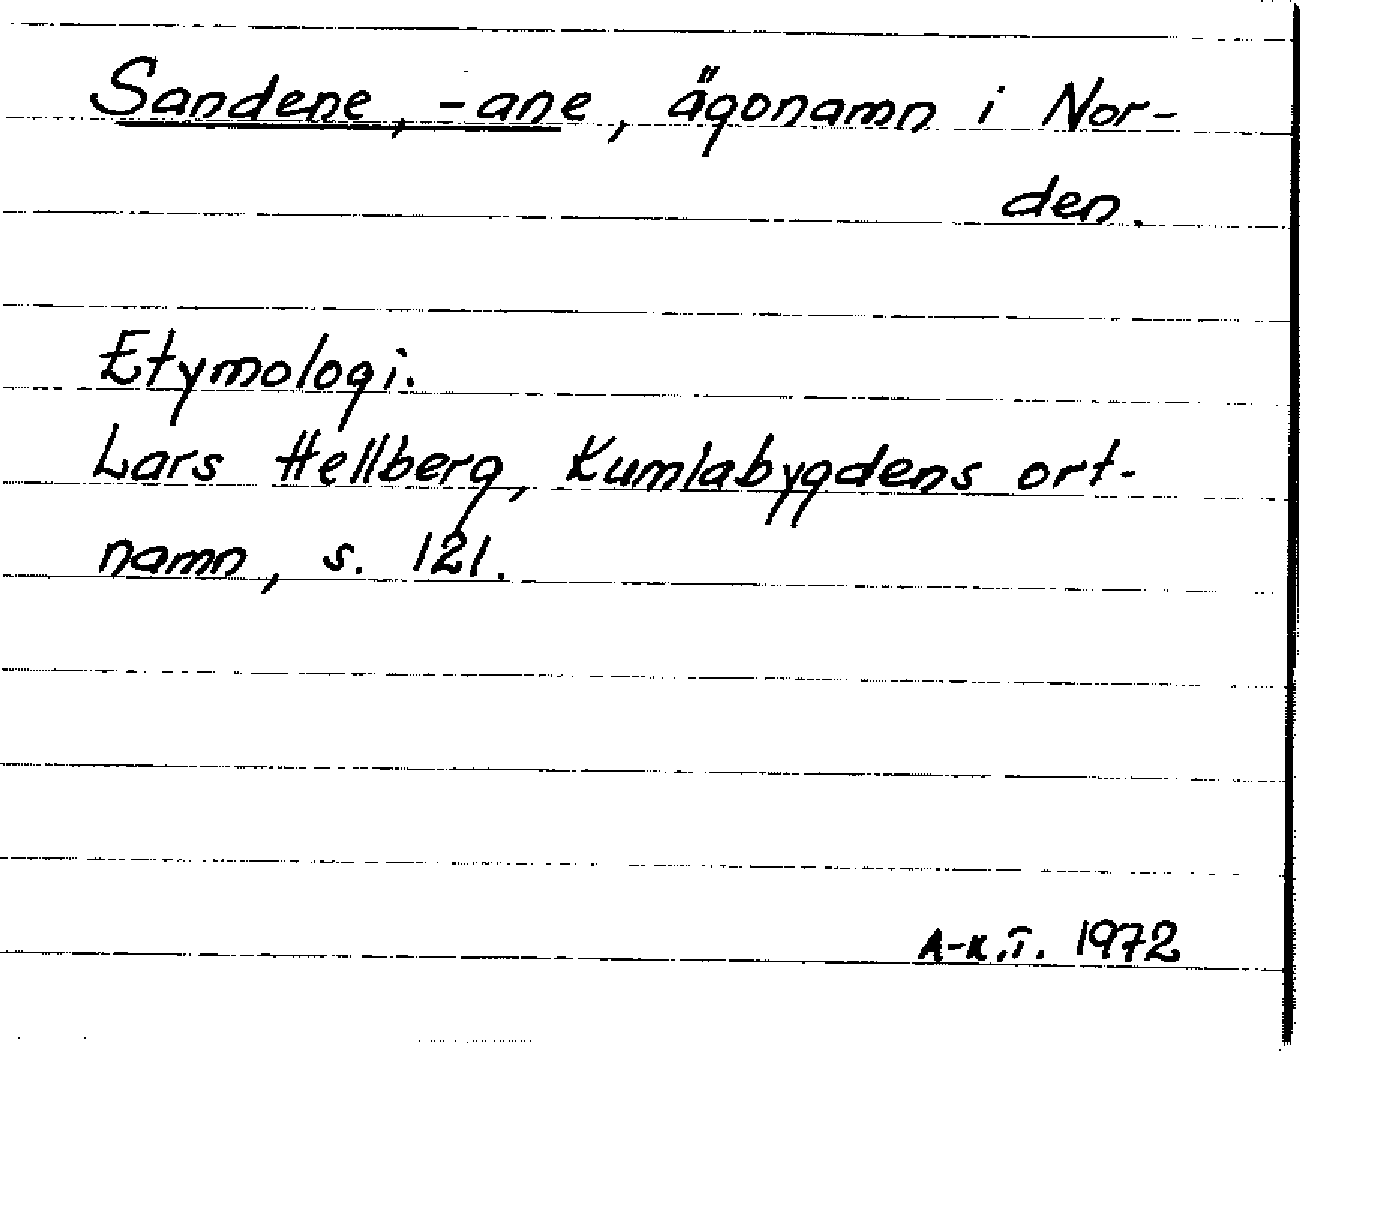 Sandene, -ane, ägonamn i Nor-
den.
Etymologi.
Lars Hellberg, Kumlabygdens ort-
namn, s. 121.
A-K.T. 1972